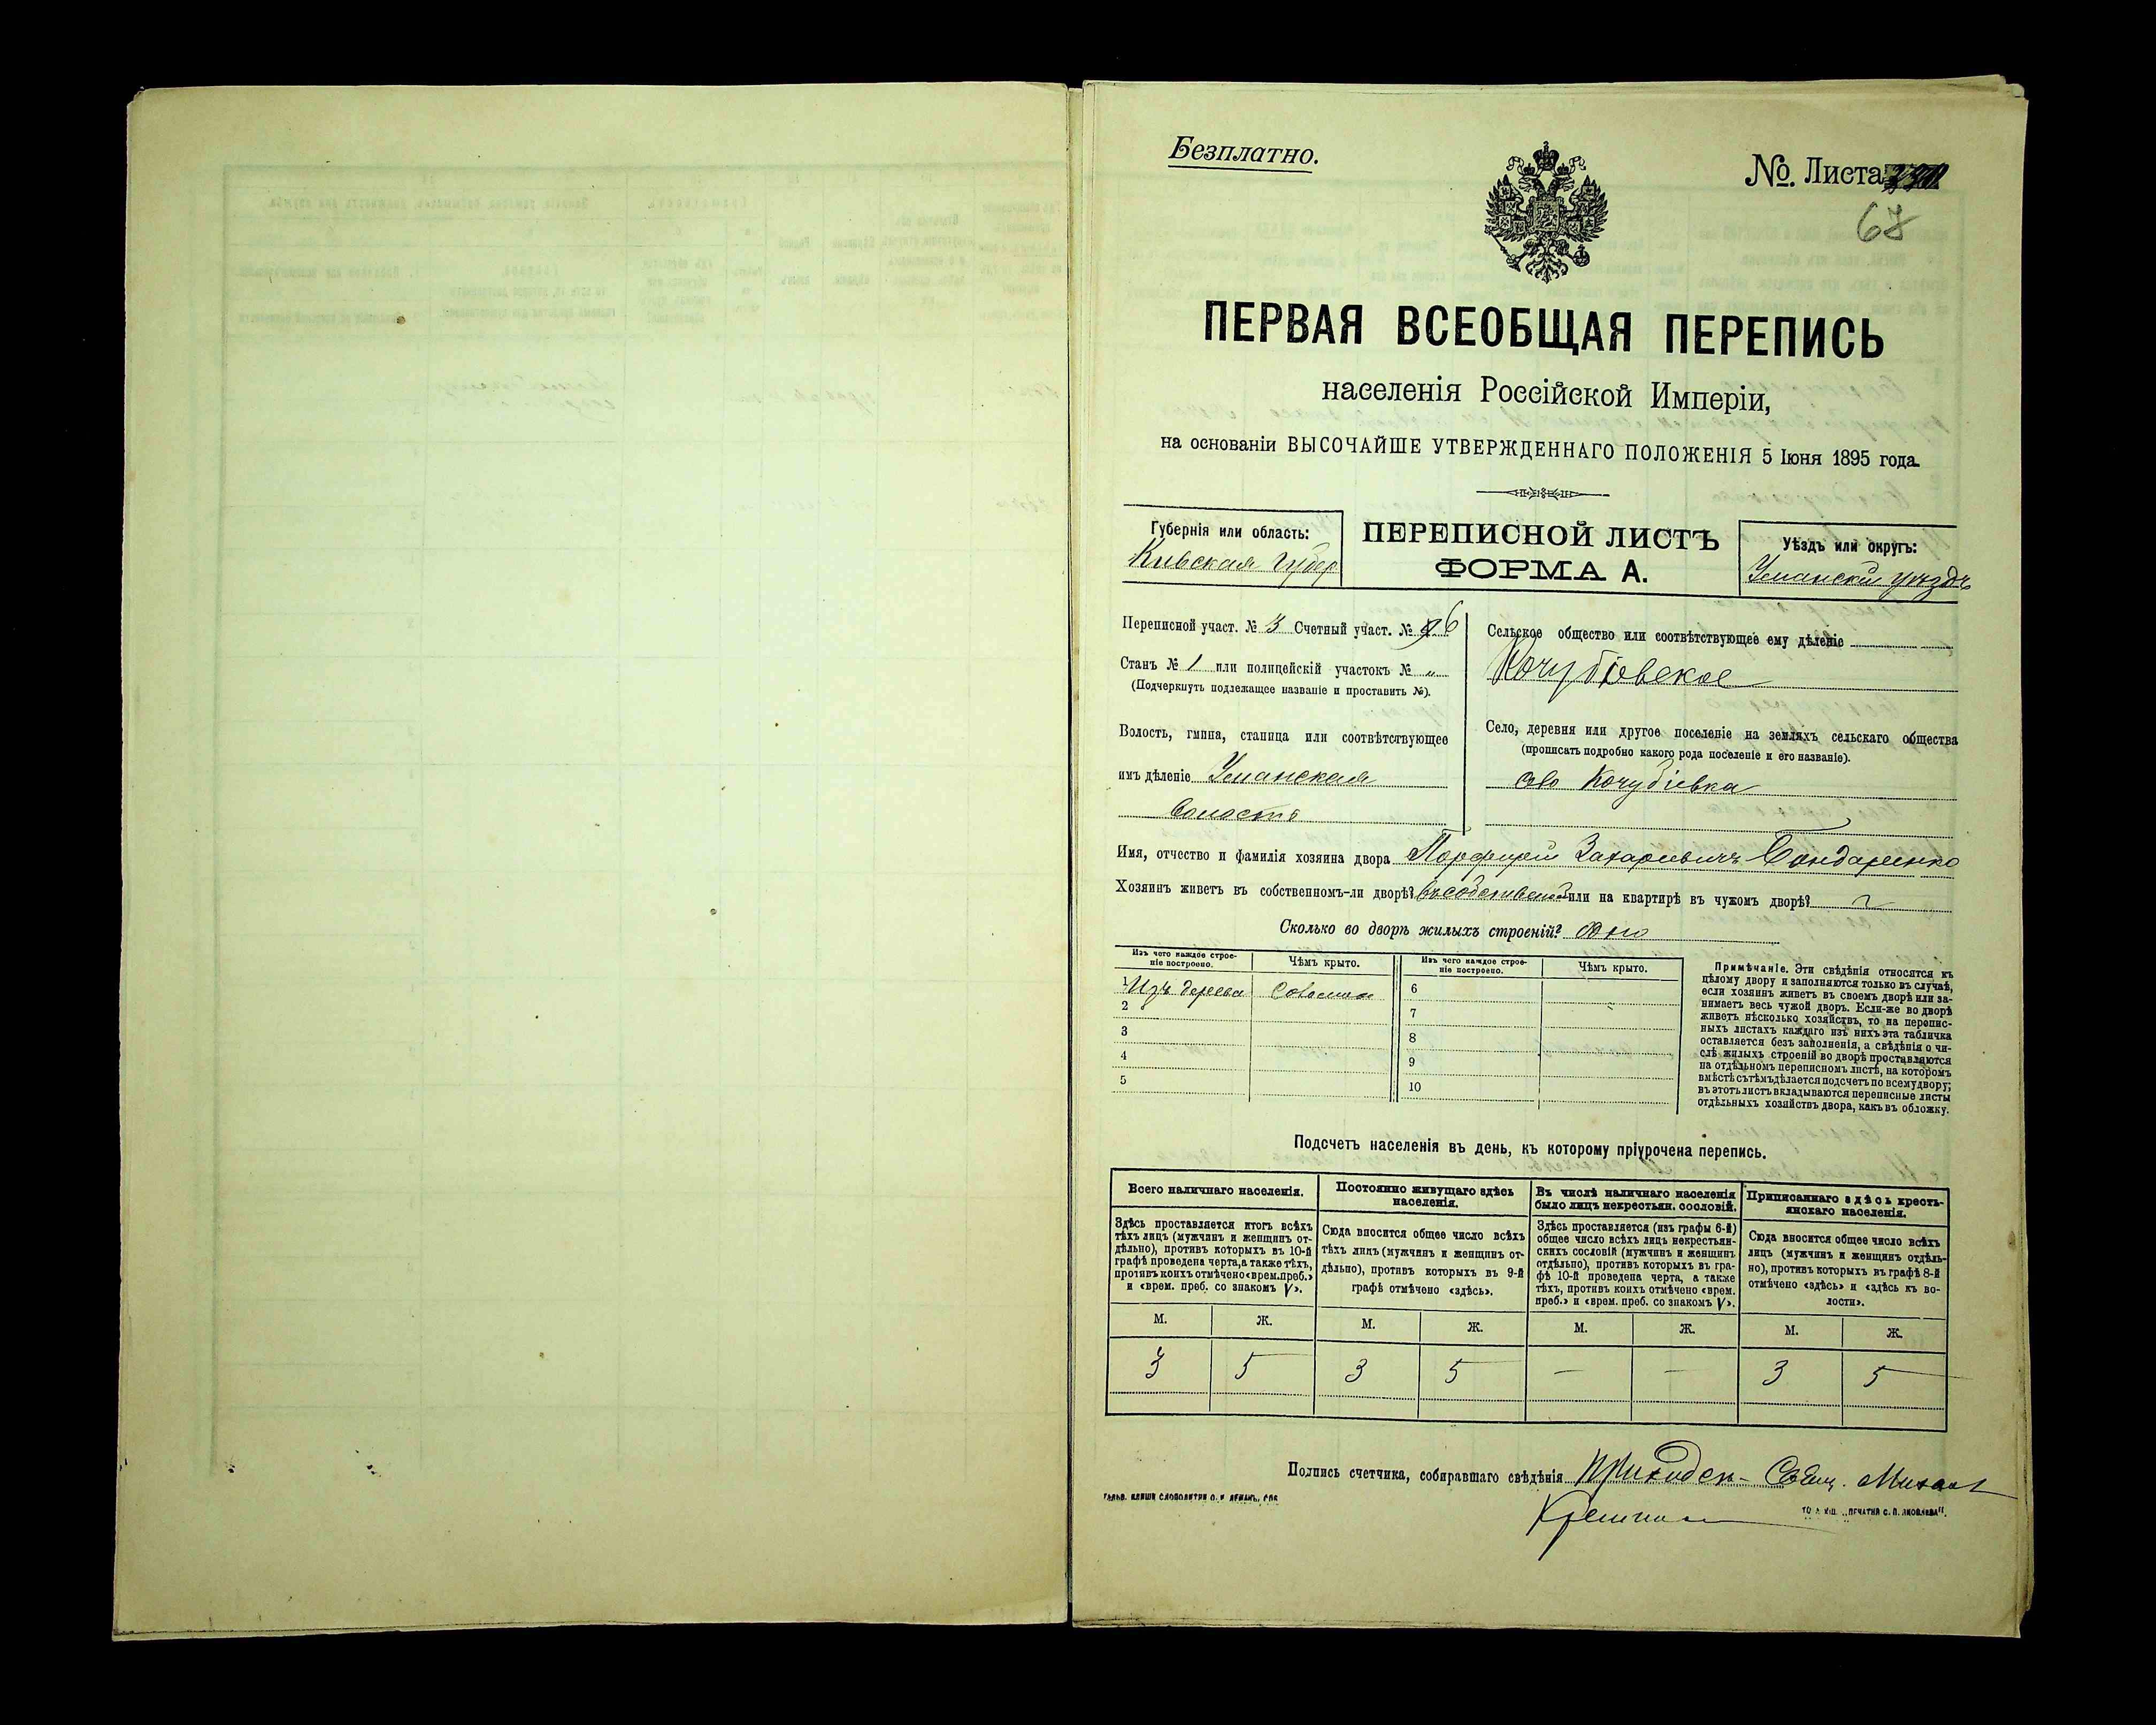 Безплатно.
№. Листа
67
ПЕРВАЯ ВСЕОБЩАЯ ПЕРЕПИСЬ
населенія Россійской Имперіи,
на основаніи ВЫСОЧАЙШЕ УТВЕРЖДЕННАГО ПОЛОЖЕНІЯ 5 Іюня 1895 года.
Губернія или область:
Кіевская губер
ПЕРЕПИСНОЙ ЛИСТЪ
ФОРМА А.
Уѣздъ или округъ:
Уманскій уѣздъ
Переписной участ. № 3 Счетный участ. № 6
Станъ № 1 или полицейскій участокъ № „
(Подчеркнуть подлежащее названіе и проставить №).
Волость, гмина, станица или соотвѣтствующее
имъ дѣленіе Уманская
Волость
Сельское общество или соотвѣтствующее ему дѣленіе
Кочубіевское
Село, деревня или другое поселеніе на земляхъ сельскаго общества
(прописать подробно какого рода поселеніе и его названіе).
село Кочубіевка
Имя, отчество и фамилія хозяина двора Порфирій Захаріевичъ Бондаренко
Хозяинъ живетъ въ собственномъ-ли дворѣ? въ собственной или на квартирѣ въ чужомъ дворѣ?
Сколько во дворѣ жилыхъ строеній? Одно
Изъ чего каждое строе-
ніе построено.
Чѣмъ крыто.
Изъ чего каждое строе-
ніе построено.
Чѣмъ крыто.
1 Изъ дерева Соломой 6
2 7
3 8
4 9
5 10
Примѣчаніе. Эти свѣдѣнія относятся къ
цѣлому двору и заполняются только въ случаѣ,
если хозяинъ живетъ въ своемъ дворѣ или за-
нимаетъ весь чужой дворъ. Если-же во дворѣ
живетъ нѣсколько хозяйствъ, то на перепис-
ныхъ листахъ каждаго изъ нихъ эта табличка
оставляется безъ заполненія, а свѣдѣнія о чи-
слѣ жилыхъ строеній во дворѣ проставляются
на отдѣльномъ переписномъ листѣ, на которомъ
вмѣстѣ съ тѣмъ дѣлается подсчетъ по всему двору;
въ этотъ листъ вкладываются переписные листы
отдѣльныхъ хозяйствъ двора, какъ въ обложку.
Подсчетъ населенія въ день, къ которому пріурочена перепись.
Всего наличнаго населенія.
Здѣсь проставляется итогъ всѣхъ
тѣхъ лицъ (мужчинъ и женщинъ от-
дѣльно), противъ которыхъ въ 10-й
графѣ проведена черта, а также тѣхъ,
противъ коихъ отмѣчено «врем. преб.»
и «врем. преб. со знакомъ V».
Постоянно живущаго здѣсь
населенія.
Сюда вносится общее число всѣхъ
тѣхъ лицъ (мужчинъ и женщинъ от-
дѣльно), противъ которыхъ въ 9-й
графѣ отмѣчено «здѣсь».
Въ числѣ наличнаго населенія
было лицъ некрестьян. сословій.
Здѣсь проставляется (изъ графы 6-й)
общее число всѣхъ лицъ некрестьян-
скихъ сословій (мужчинъ и женщинъ
отдѣльно), противъ которыхъ въ гра-
фѣ 10-й проведена черта, а также
тѣхъ, противъ коихъ отмѣчено «врем.
преб.» и «врем. преб. со знакомъ V».
Приписаннаго здѣсь кресть-
янскаго населенія.
Сюда вносится общее число всѣхъ
лицъ (мужчинъ и женщинъ отдѣль-
но), противъ которыхъ въ графѣ 8-й
отмѣчено «здѣсь» и «здѣсь къ во-
лости».
М. Ж. М. Ж. М. Ж. М. Ж.
3 5 3 5 — — 3 5
Подпись счетчика, собиравшаго свѣдѣнія Приходск. Свящ. Михаил